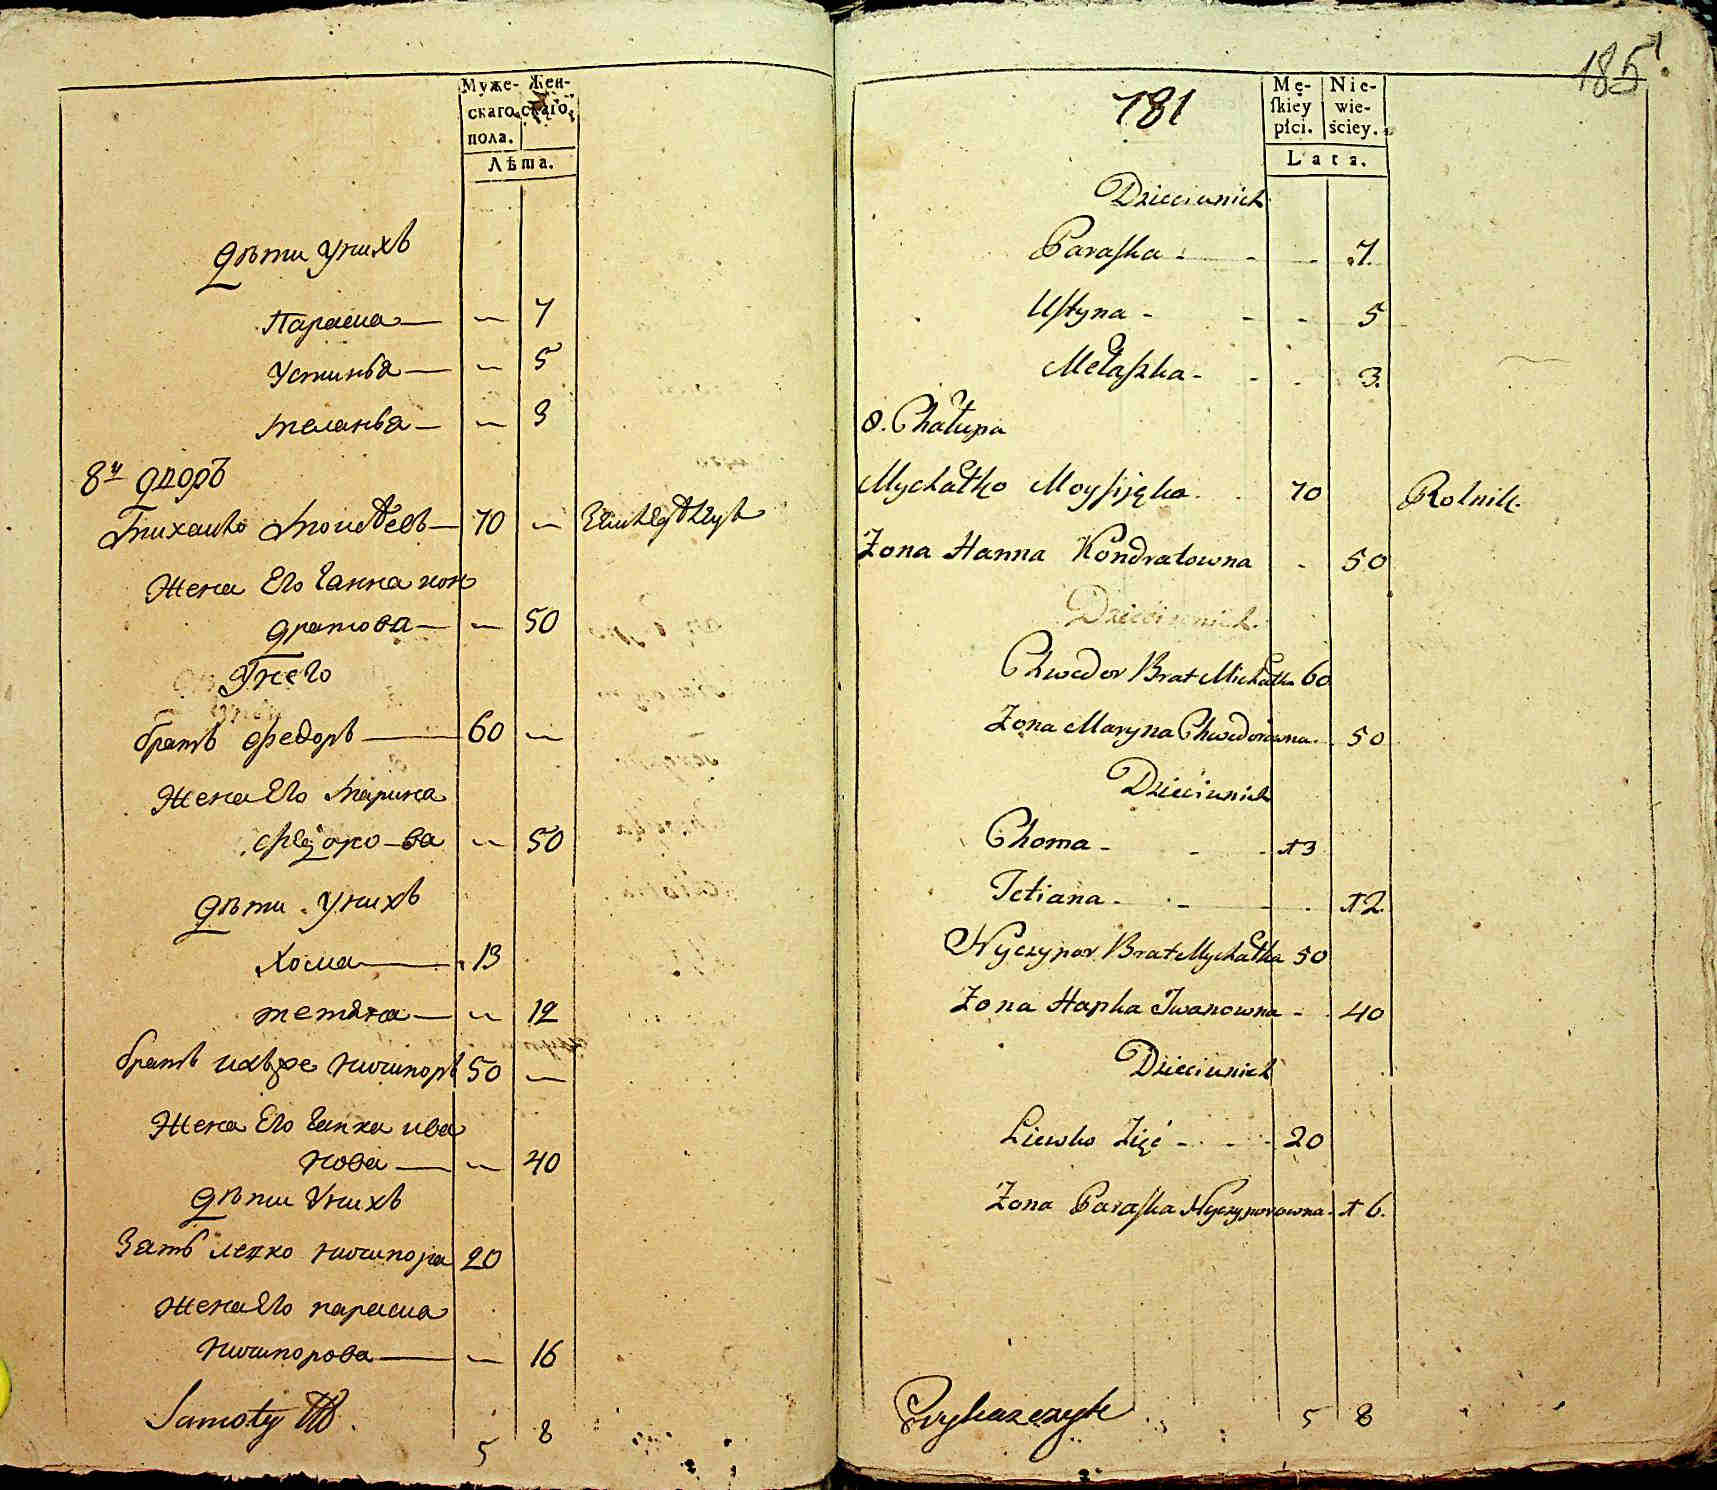 Муже- Жен-
скаго скаго
пола.
Лѣта.
Дѣти Унихъ
Параска — 7
Устинья — 5
Меланья — 3
8й дворъ
Михалко Моисѣевъ 70 —
Жена Его Ганна кон
дратова — 50
У него
братъ Федоръ 60 —
Жена Его Марина
Федорова — 50
Дѣти Унихъ
Хома 13
Тетяна — 12
братъ ихъ же Ничипоръ 50 —
Жена Его Гапка ива
нова — 40
Дѣти Унихъ
Зять левко Ничипора 20
Жена Его параска
Ничипорова — 16
Samoty
5 8
185
181
Mę- Nie-
ſkiey wie-
płci. ściey.
Lata.
Dzieci u nich
Paraſka - - - 7.
Uſtyna - - - 5
Mełaſzka - - - 3.
8. Chałupa
Mychałko Moyſijęka 70 Rolnik.
Żona Hanna Kondratowna - 50
Dzieci u nich
Chwedor Brat Michałka 60
Żona Maryna Chwedorowna 50
Dzieci u nich
Choma - - - 13
Tetiana - - - 12.
Nyczypor Brat Mychałka 50
Żona Hapka Jwanowna - 40
Dzieci u nich
Liewko Zięć - - - 20
Żona Paraſka Nyczyporowna 16.
Prykazczyk
5 8